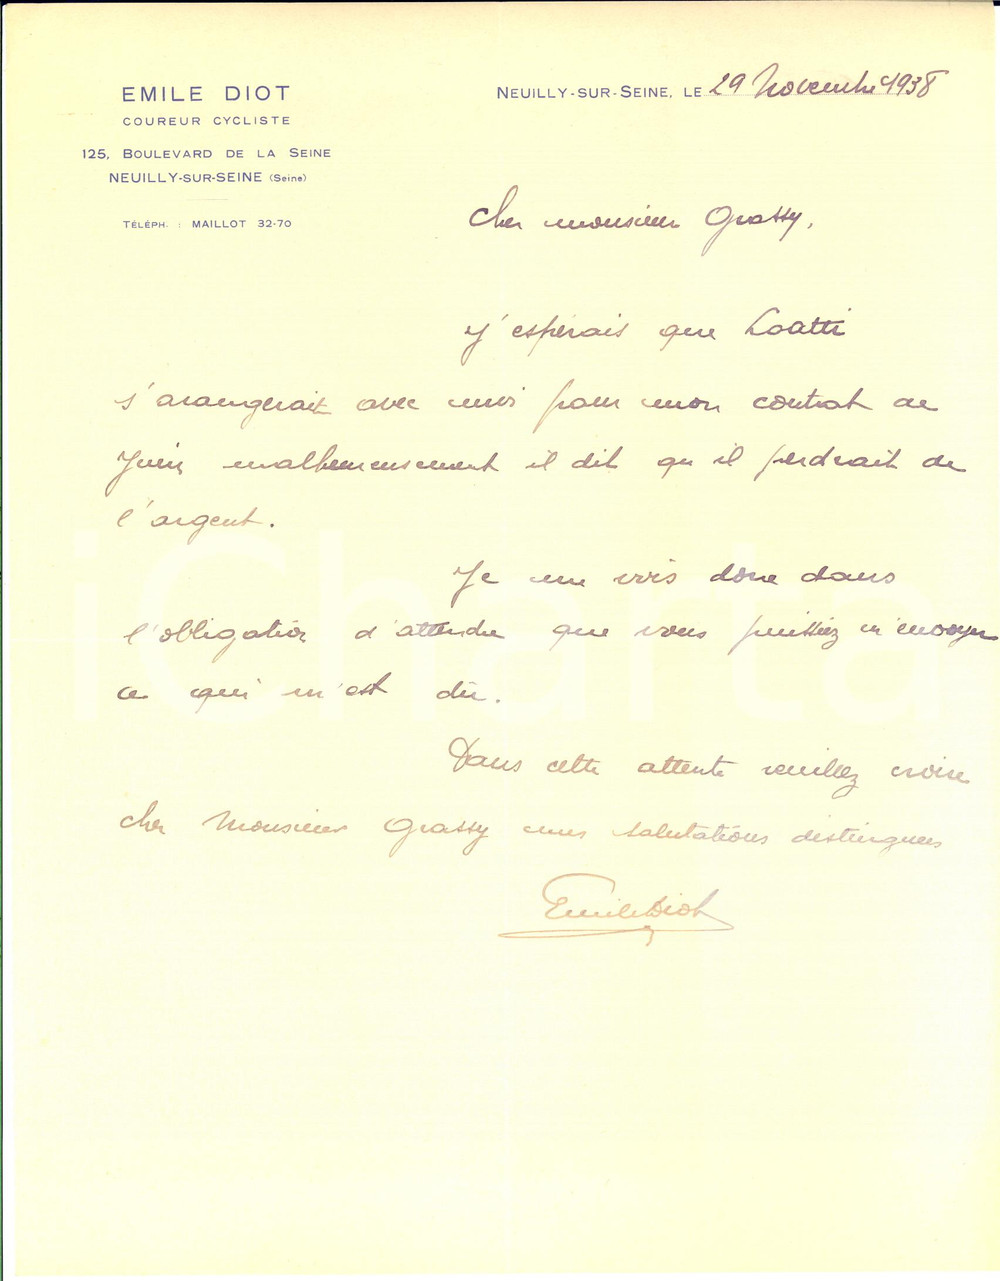 EMILE DIOT
COUREUR CYCLISTE
125, BOULEVARD DE LA SEINE
NEUILLY-SUR-SEINE (Seine)
TÉLÉPH. : MAILLOT 32-70
NEUILLY-SUR-SEINE, LE 29 Novembre 1938
Cher monsieur Grassy,
J'espérais que Loatti
s'arangerait avec moi pour mon contrat de
Juin malheureusement il dit qu'il perdrait de
l'argent.
Je me vois donc dans
l'obligation d'attendre que vous puissiez m'envoyer
ce qui m'est dû.
Dans cette attente veuillez croire
cher Monsieur Grassy mes salutations distinguées
Emile Diot
iCharta